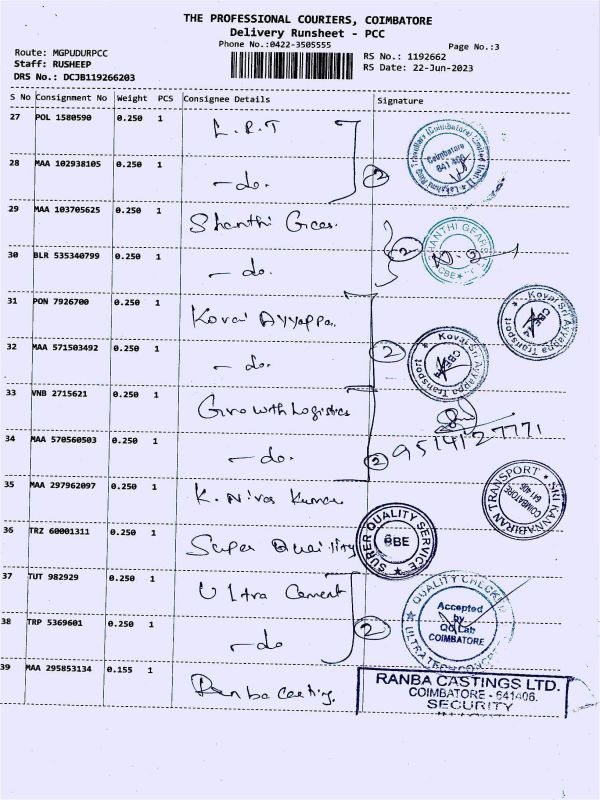 THE PROFESSIONAL COURIERS, COIMBATORE
Delivery Runsheet - PCC
Phone No.:0422-3505555
Page No.:3
Route: MGPUDURPCC
RS No.: 1192662
Staff: RUSHEEP
RS Date: 22-Jun-2023
DRS No.: DCJB119266203
S No Consignment No Weight PCS Consignee Details Signature
27 POL 1580590 0.250 1 L.R.T
28 MAA 102938105 0.250 1 - do. 2
Coimbatore 641 406
29 MAA 103705625 0.250 1 Shanthi Gears.
30 BLR 535340799 0.250 1 - do. 2
SHANTHI GEARS CBE
31 PON 7926700 0.250 1 Kovai Ayyappa.
Kovai Sri Ayyappa Transport
32 MAA 571503492 0.250 1 - do. 2
Kovai Sri Ayyappa Transport
33 VNB 2715621 0.250 1 Growth Logistics
34 MAA 570560503 0.250 1 - do. 2 9514127771
35 MAA 297962097 0.250 1 K. Nivas Kumar
SRI KANNABIRAN TRANSPORT COIMBATORE 641 406
36 TRZ 60001311 0.250 1 Super Quality
SUPER QUALITY SERVICE
37 TUT 982929 0.250 1 Ultra Cement
38 TRP 5369601 0.250 1 - do 2
QUALITY CHECKED
Accepted
by
QC Lab
COIMBATORE
39 MAA 295853134 0.155 1 Ranba Casting.
RANBA CASTINGS LTD.
COIMBATORE - 641406.
SECURITY